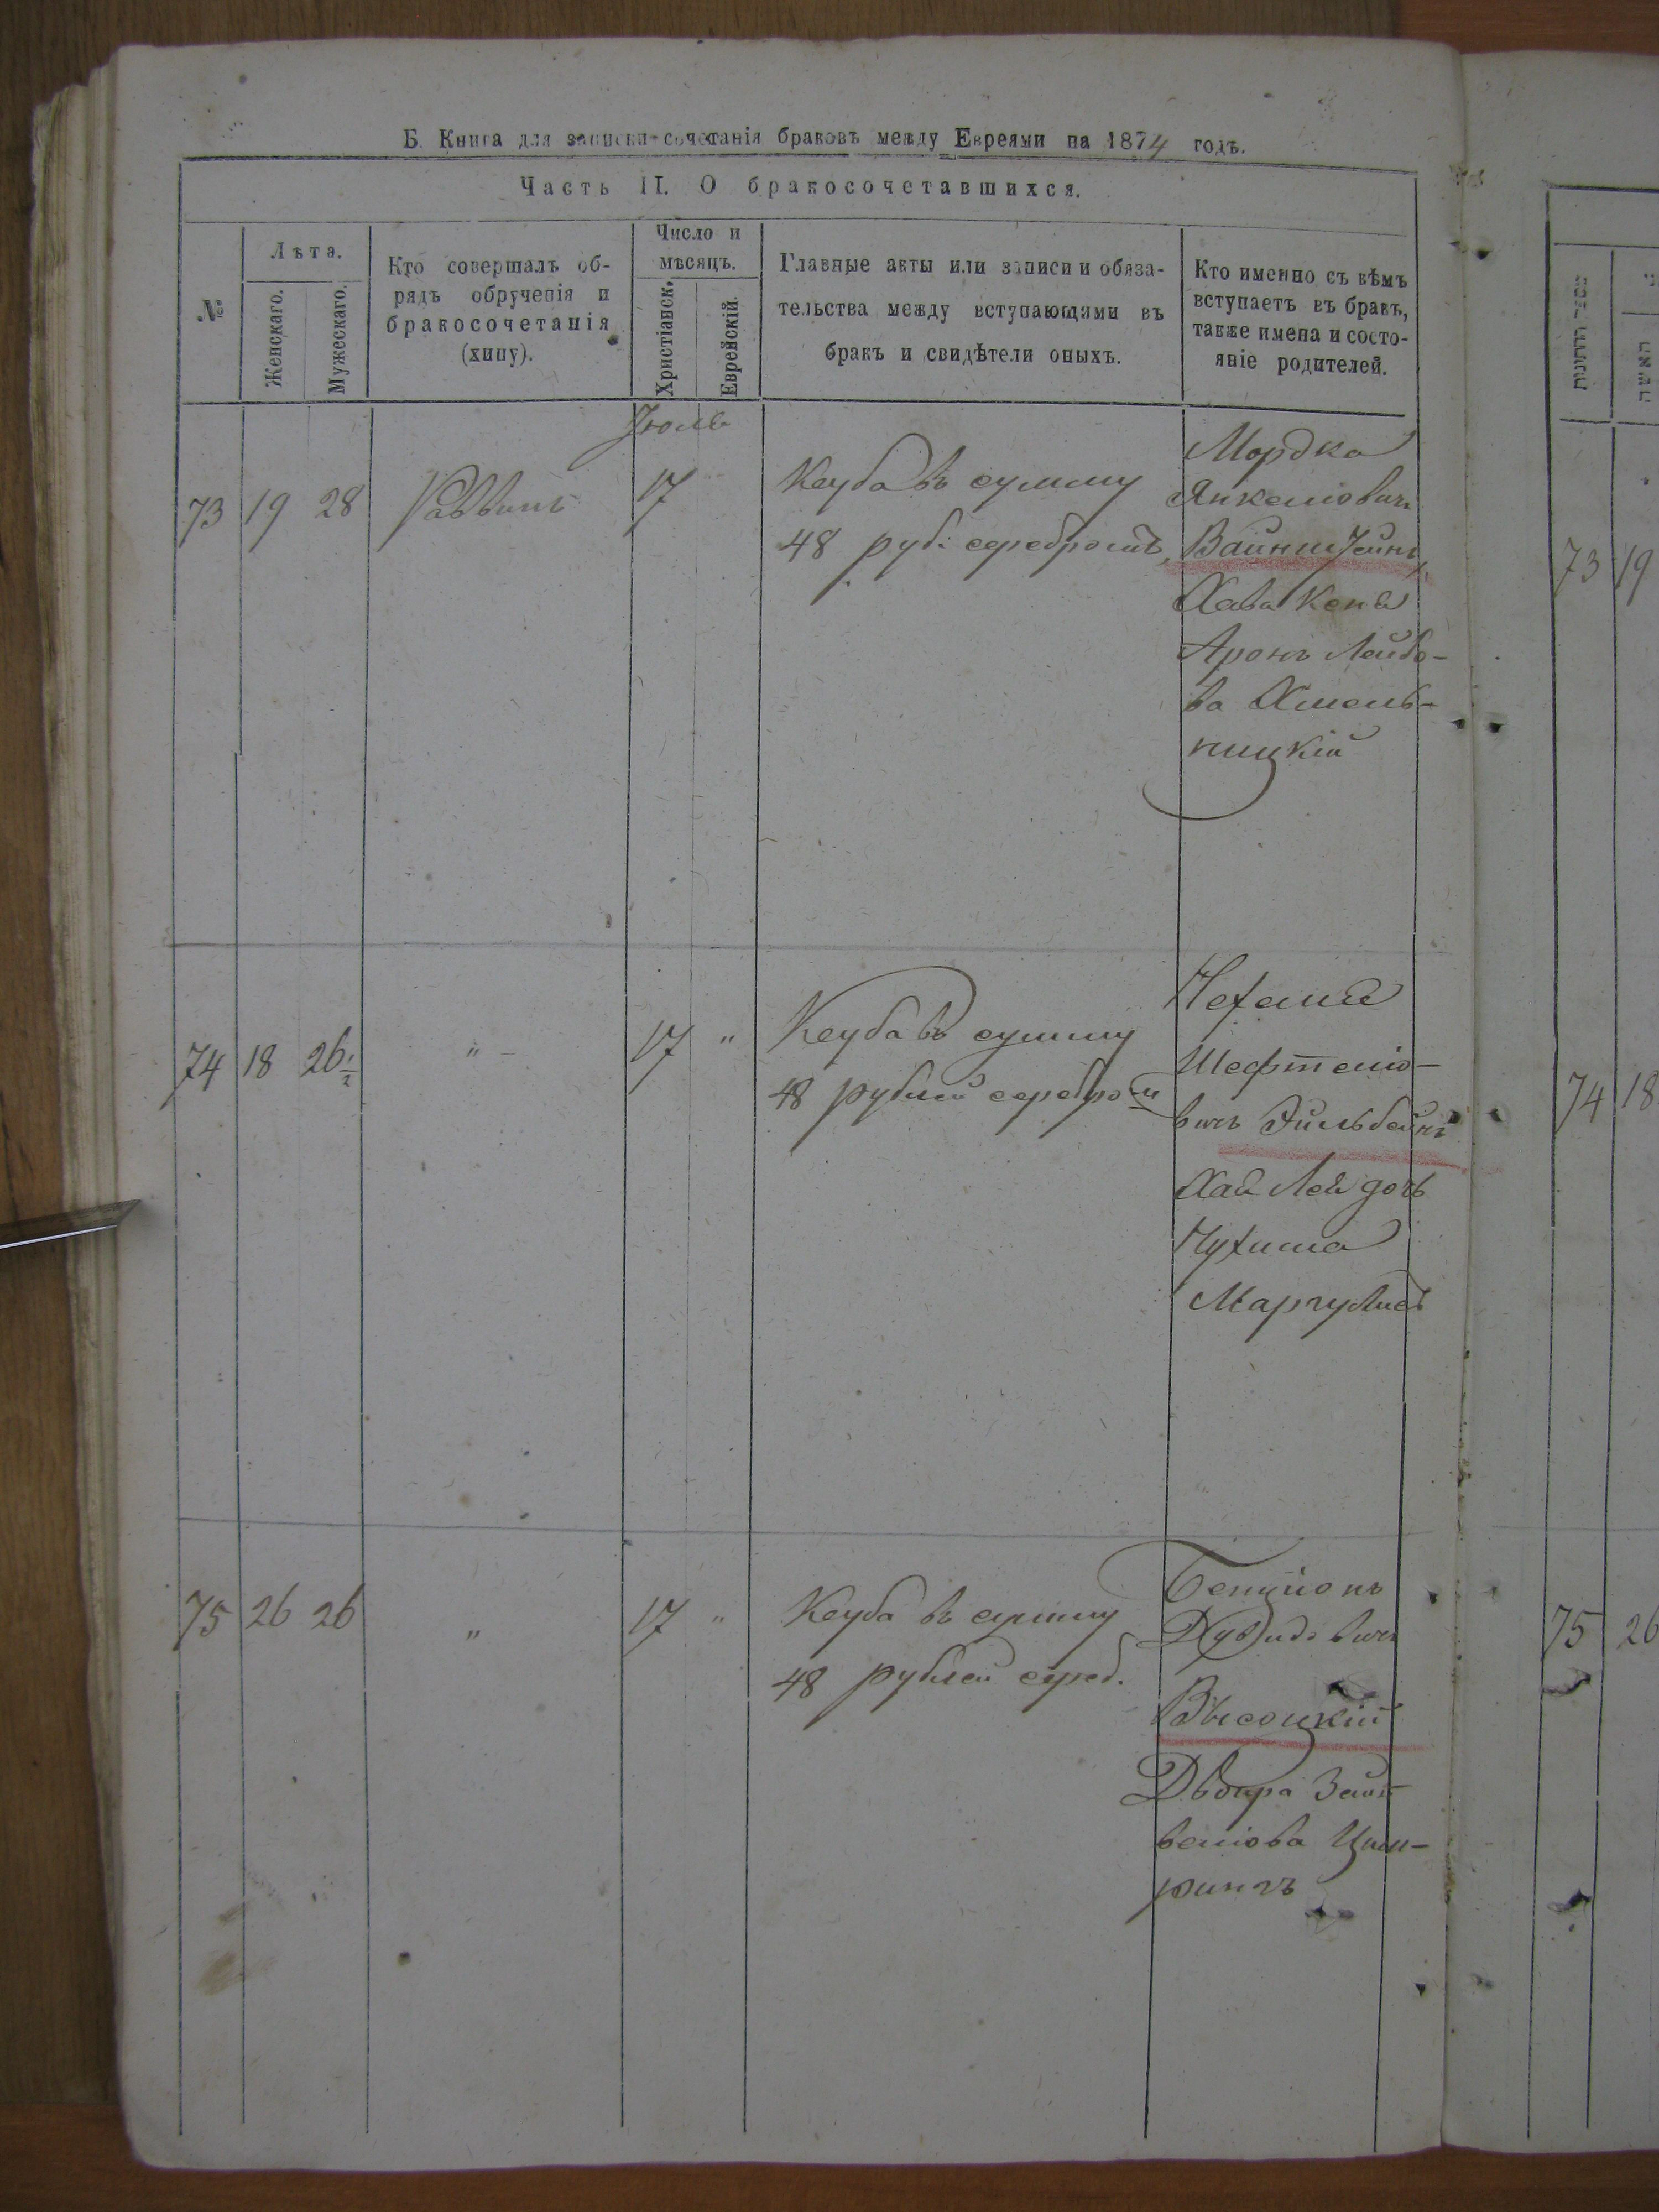 Б. Книга для записки сочетанія браковъ между Евреями на 1874 годъ.
Часть II. О бракосочетавшихся.
№
Лѣта.
Женскаго.
Мужескаго.
Кто совершалъ об-
рядъ обрученія и
бракосочетанія
(хипу).
Число и
мѣсяцъ.
Христіанск.
Еврейскій.
Главные акты или записи и обяза-
тельства между вступающими въ
бракъ и свидѣтели оныхъ.
Кто именно съ кѣмъ
вступаетъ въ бракъ,
также имена и состо-
яніе родителей.
Іюль
73 19 28 Раввинъ 17
Кеуба въ сумму
48 руб. серебромъ,
Мордка
Янкеліовичъ
Вайнштейнъ,
Хава Кеня
Аронъ Лейбо-
ва Хмель-
ницкій
74 18 26 1/2 " 17 "
Кеуба въ сумму
48 рублей серебро-м
Нехемія
Шефтеліо-
вичъ Эйльбейнъ
Хая Лея дочь
Нухима
Маргулисъ
75 26 26 " 17 "
Кеуба въ сумму
48 рублей сереб.
Бенціонъ
Дувидовичъ
Высоцкій
Двойра Зей-
веліова Цим-
рингъ
73 19
74 18
75 26
מספר החתונות
האשה